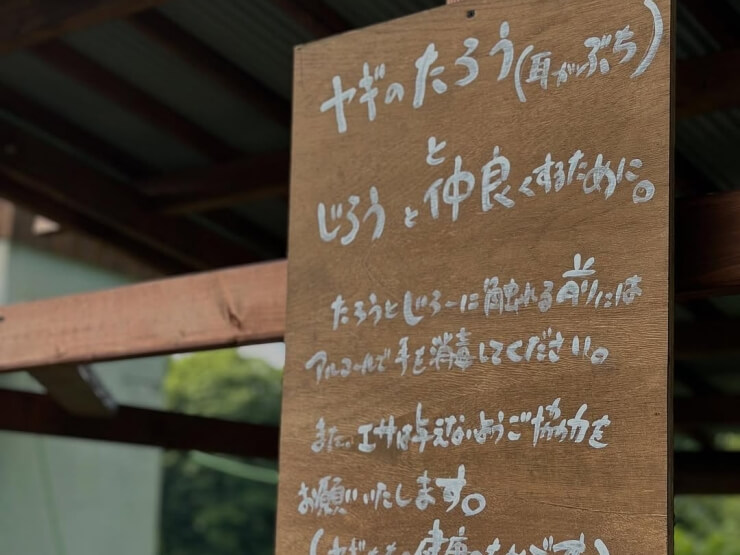 ヤギのたろう(耳がぶち)
と
じろうと仲良くするために。
たろうとじろーに触れる前には
アルコールで手を消毒してください。
また、エサは与えないようご協力を
お願いいたします。
(ヤギたちの健康のためです)